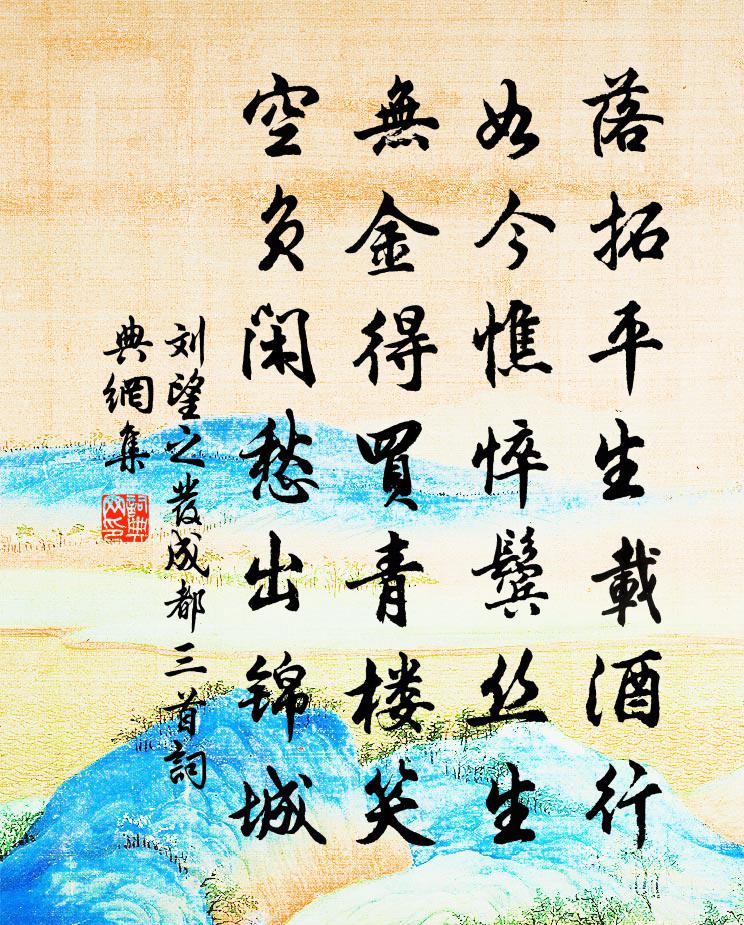 落拓平生載酒行
如今憔悴鬓丝生
無金得買青楼笑
空负闲愁出锦城
刘望之发成都三首詞
典網集
詞典网印